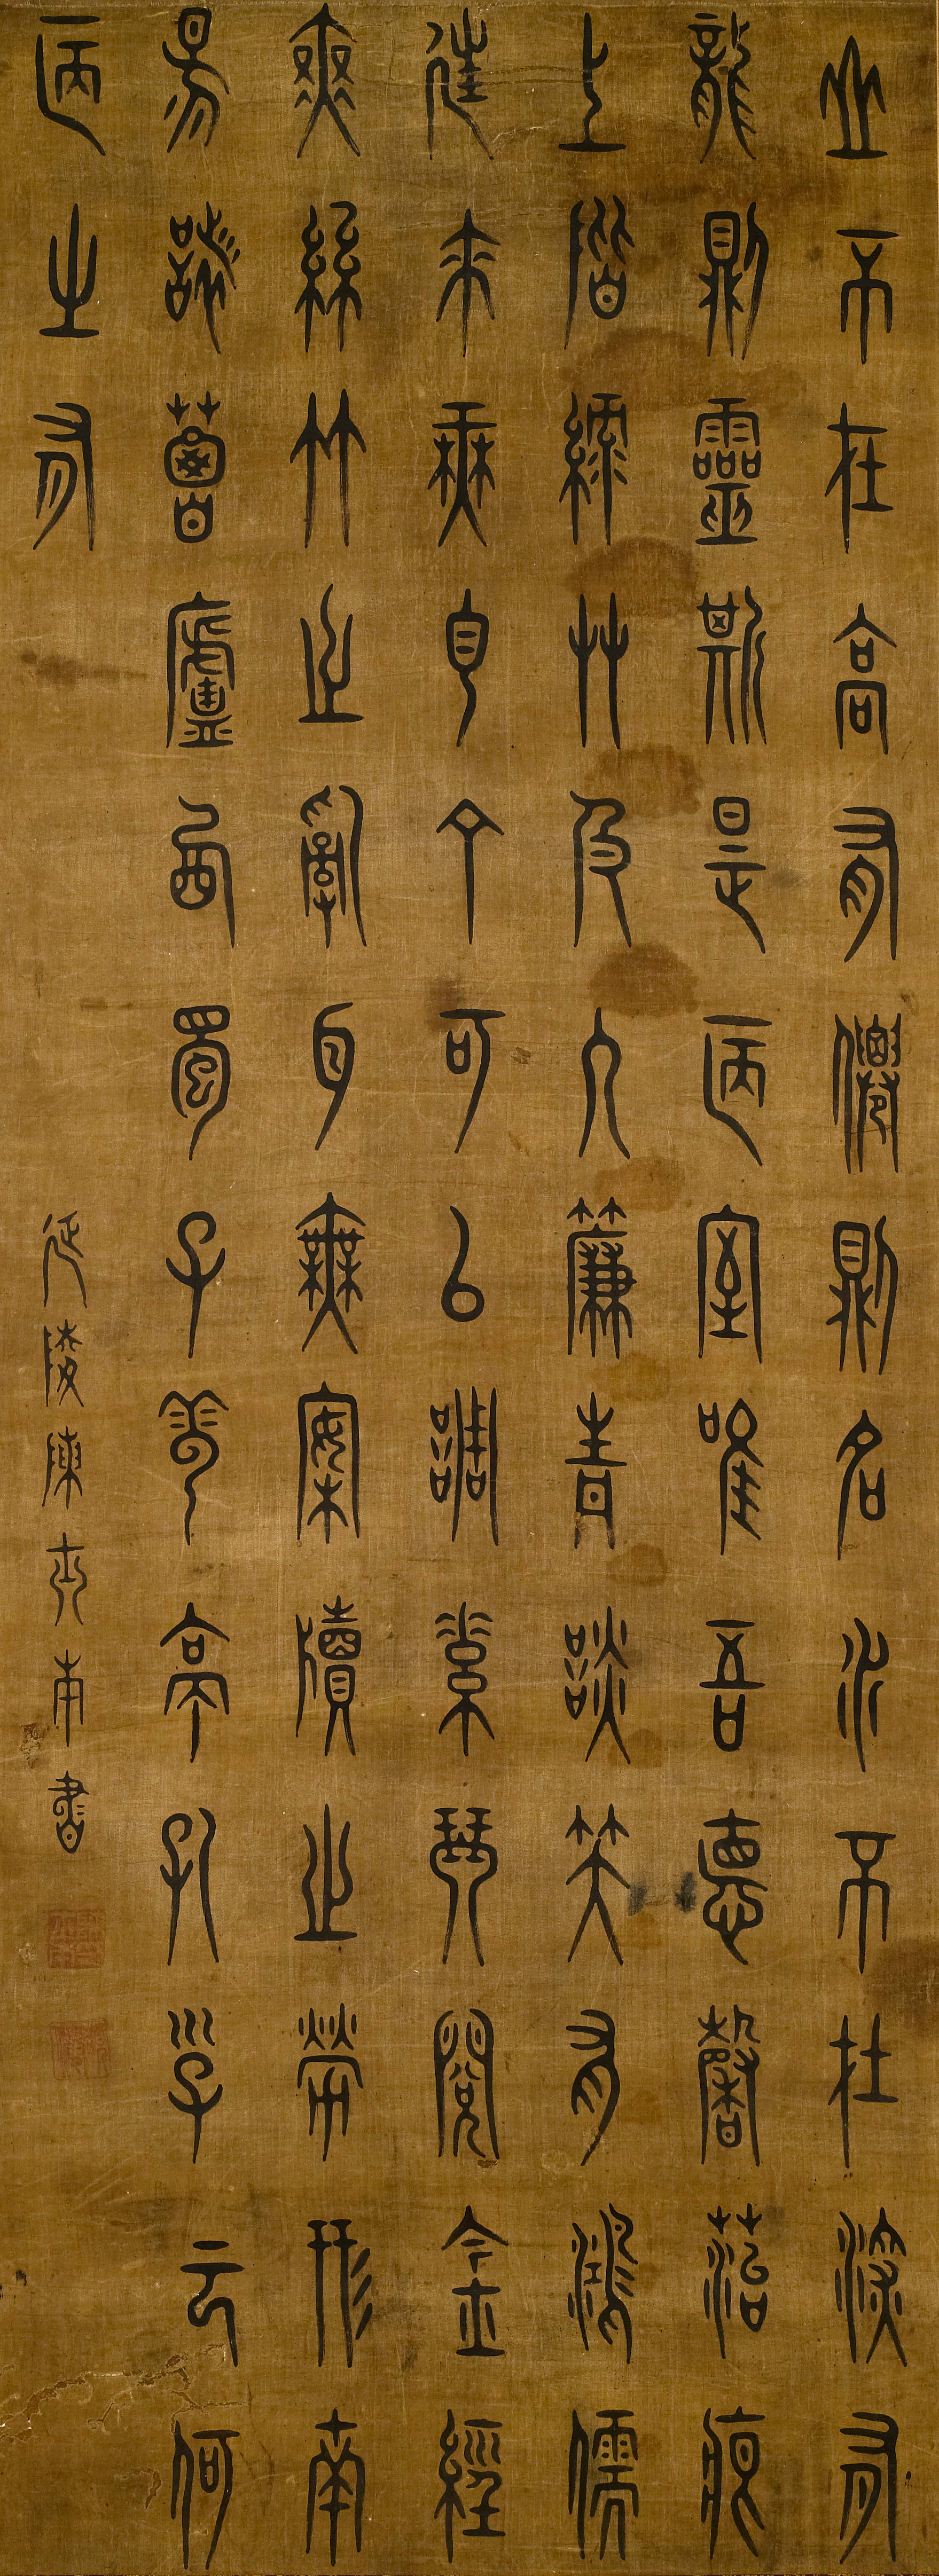 山不在高有僊則名水不在深有
龍則靈斯是陋室唯吾惪馨苔痕
上階綠艸色入簾青談笑有鴻儒
往來無白丁可以調素琴閱金經
無絲竹之亂耳無案牘之勞形南
昜諸葛廬西蜀子雲亭孔子云何
陋之有
延陵陳南書